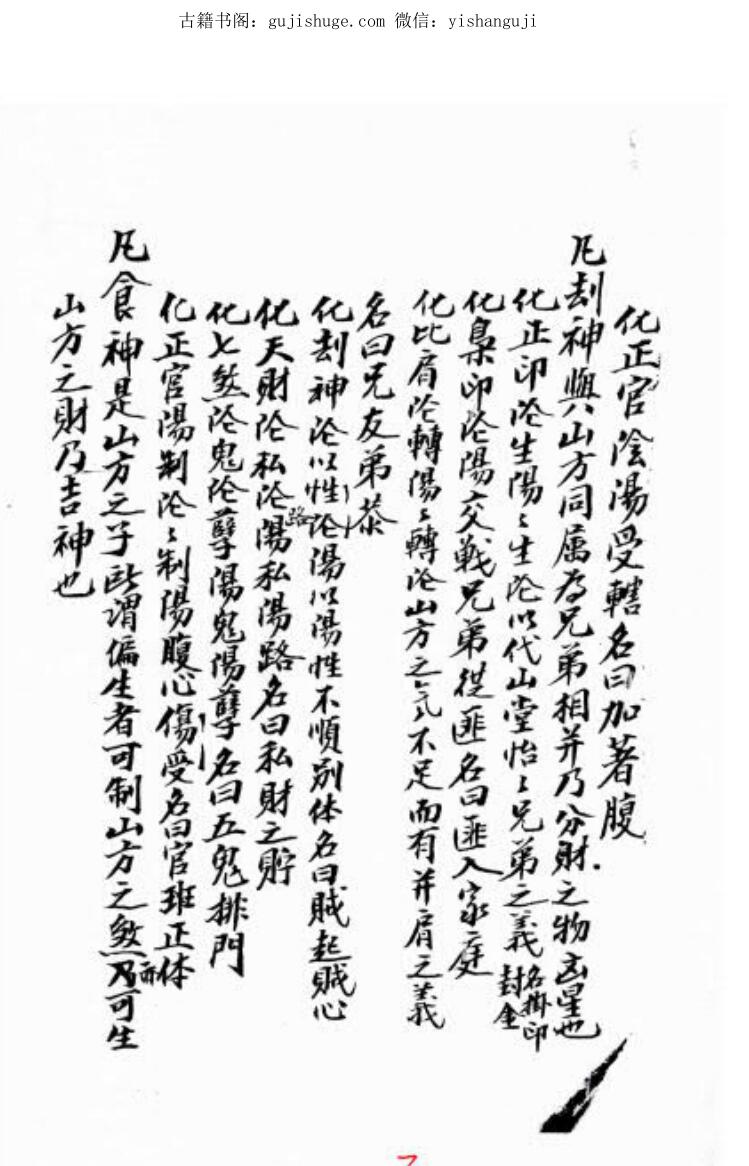 古籍书阁：gujishuge.com 微信：yishanguji
化正官陰陽受轄名曰加著腹
凡刦神與山方同属為兄弟相并乃分財之物凶星也
化正印沦生陽〻生沦以代山堂怡〻兄弟之義名掛印封金
化梟印沦陽交戦兄弟從匪名曰匪入家庭
化比肩沦轉陽〻轉沦山方之气不足而有并肩之義
名曰兄友弟恭
化刦神沦以性沦陽以陽性不順别体名曰贼起贼心
化天財沦私沦路陽私陽路名曰私財之貯
化七煞沦鬼沦孽陽鬼陽孽名曰五鬼排門
化正官陽制沦〻制陽腹心傷受名曰官班正体
凡食神是山方之子此謂偏生者可制山方之煞而乃可生
山方之財乃吉神也